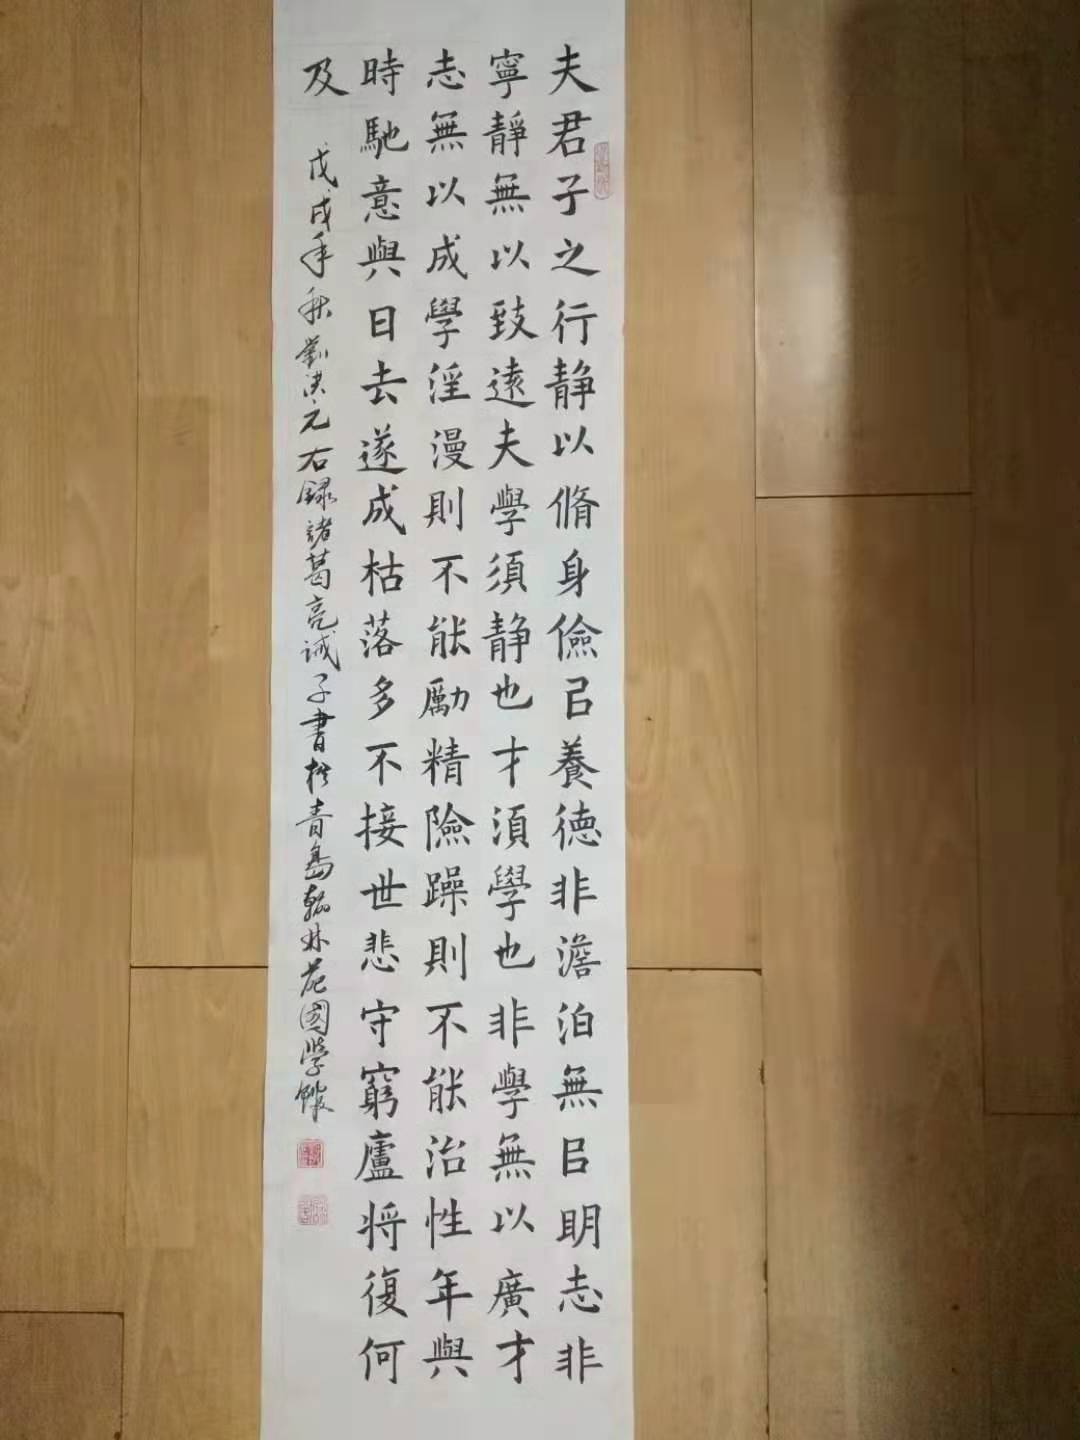 夫君子之行静以脩身儉㠯養德非澹泊無㠯明志非
寧靜無以致遠夫學須静也才須學也非學無以廣才
志無以成學淫漫則不能勵精險躁則不能治性年與
時馳意與日去遂成枯落多不接世悲守窮廬将復何
及
戊戌年秋劉洪元右録諸葛亮誡子書於青島翰林苑國學館